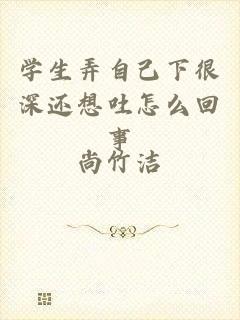 学生弄自己下很
深还想吐怎么回
事
尚竹洁